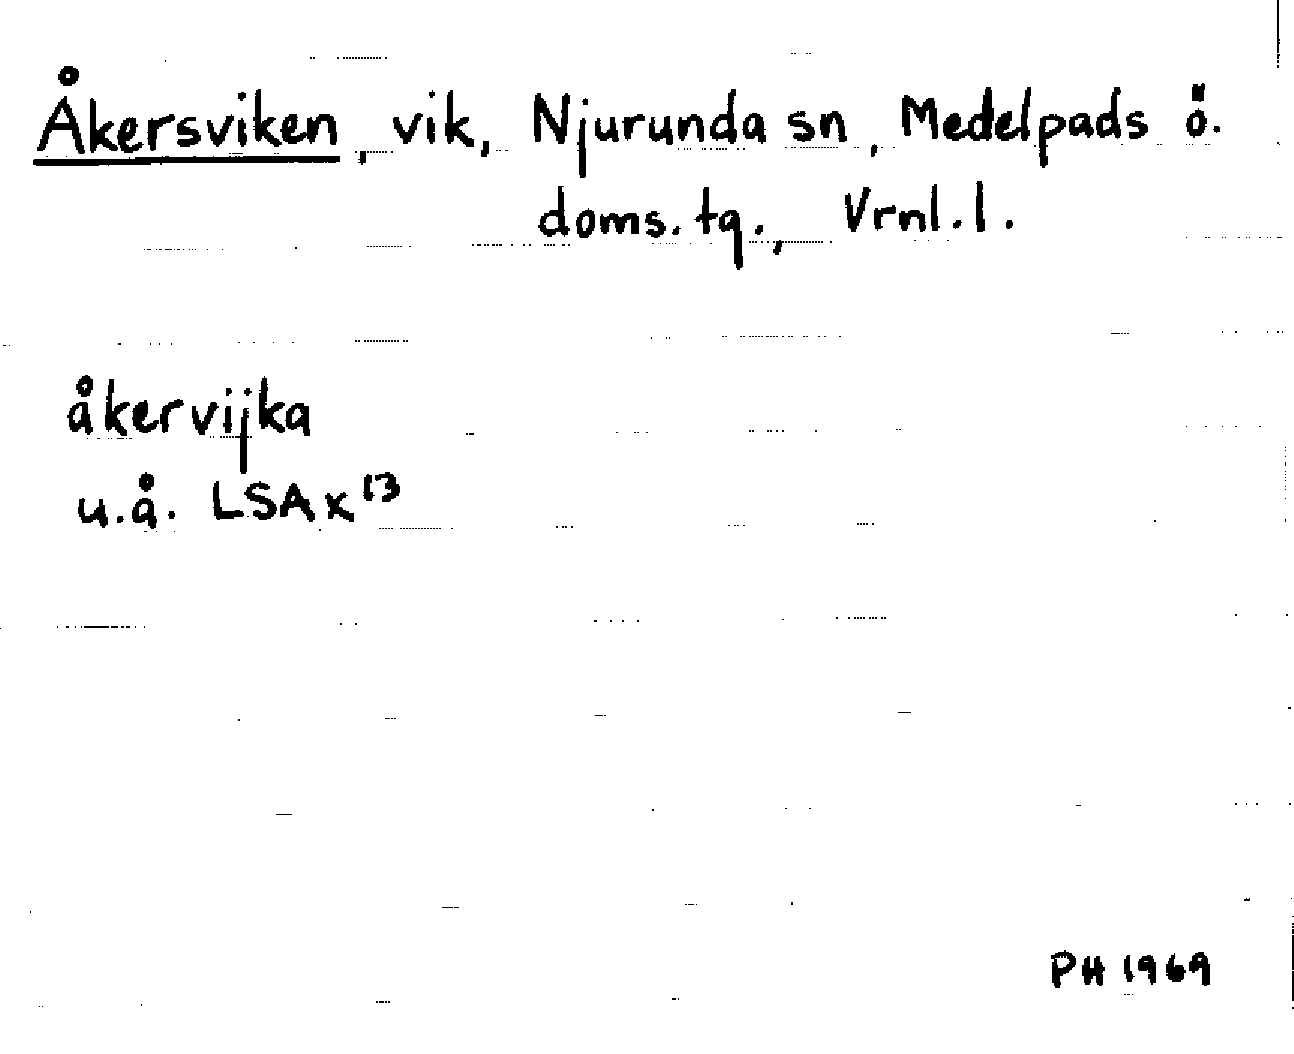 Åkersviken, vik, Njurunda sn, Medelpads ö.
doms.tg., Vrnl.l.
åkervijka
u.å. LSAx¹³
PH 1969